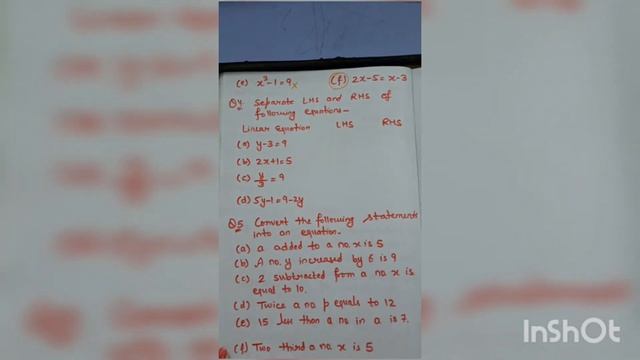 (e) x³-1=9 x (f) 2x-5=x-3
Q4 Separate LHS and RHS of
following equations-
Linear Equation LHS RHS
(a) y-3=9
(b) 2x+1=5
(c) y/3 = 9
(d) 5y-1=9-2y
Q5 Convert the following statements
into an equation-
(a) a added to a no. x is 5
(b) A no. y increased by 6 is 9
(c) 2 subtracted from a no x is
equal to 10.
(d) Twice a no p equals to 12
(e) 15 less than a no in a is 7.
(f) Two third a no x is 5
InShOt